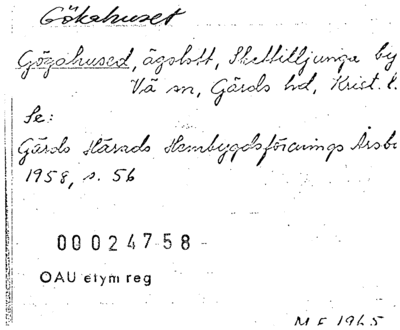 Gökahuset
Gögahused, ägolott, Skettilljunga by
Vä sn, Gärds hd, Krist. l.
Se:
Gärds Härads Hembygdsförenings Årsbo
1958, s. 56
00024758
OAU etym reg
M F 1965